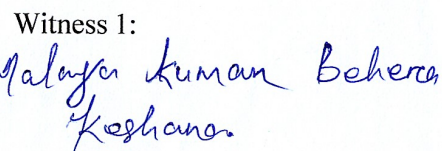 Witness 1:
Malaya Kumar Behera
Keshana.